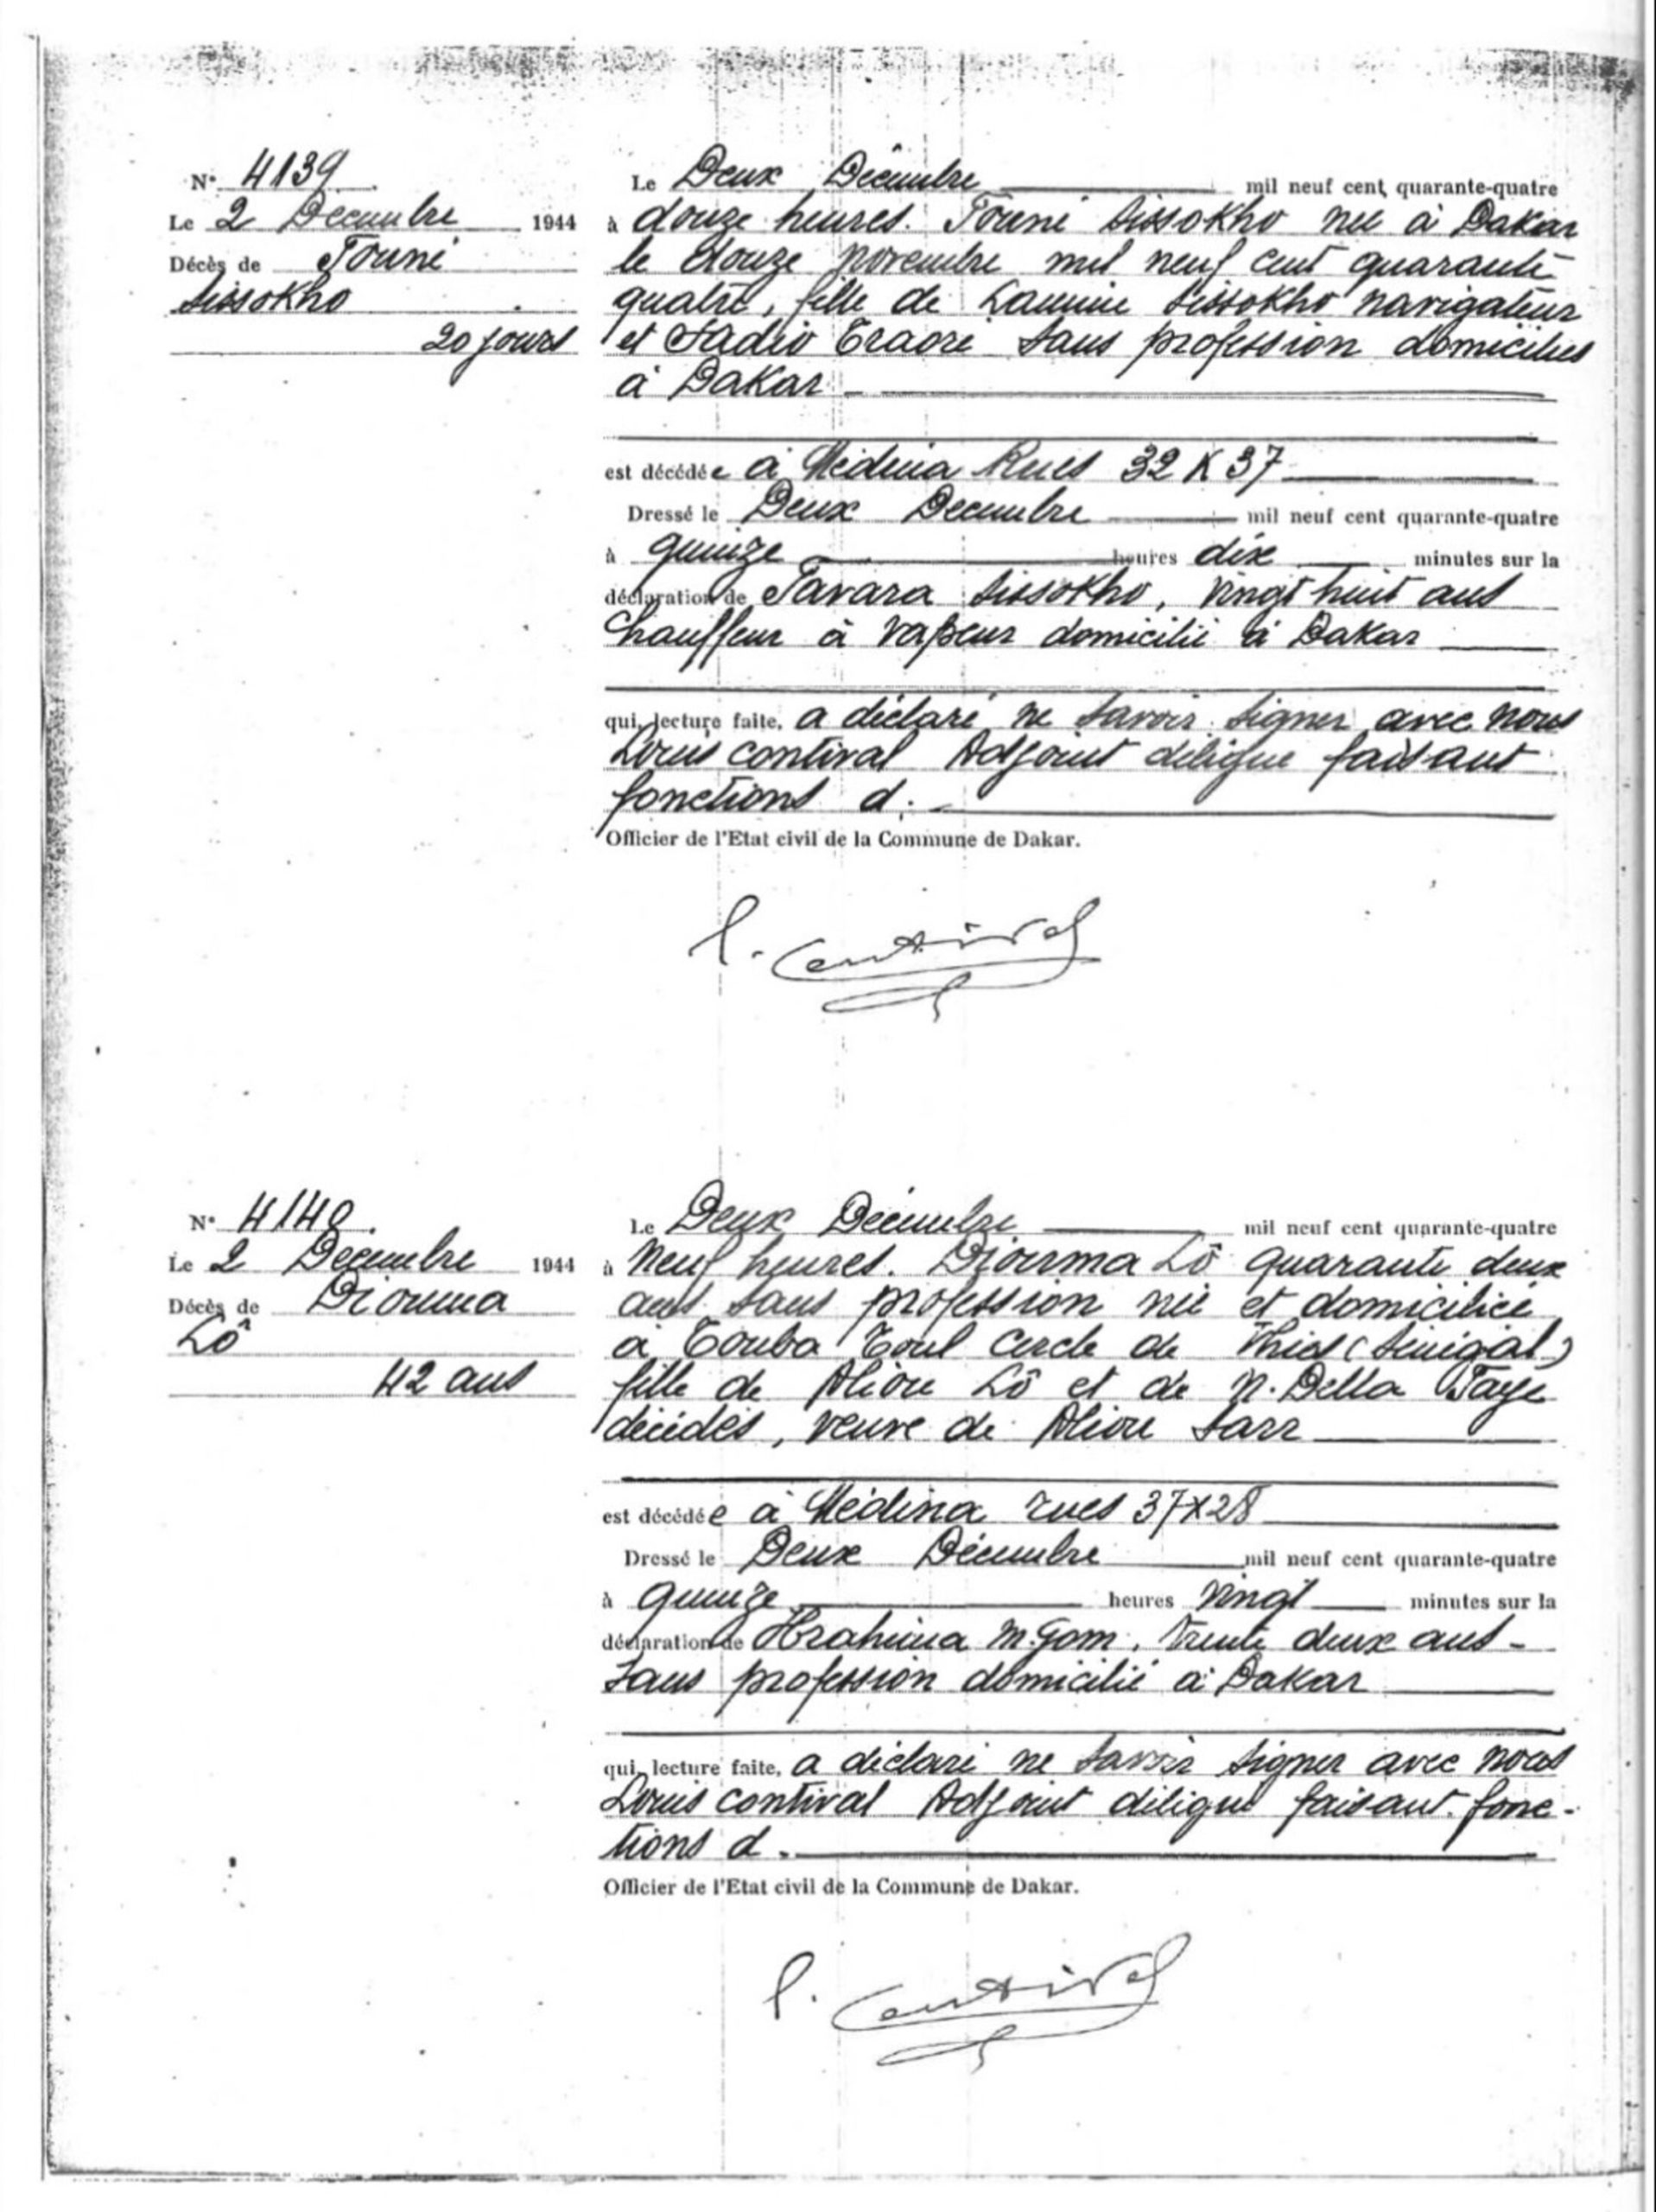 N° 4139
Le 2 Decembre 1944
Décès de Founé
Sissokho
20 jours
Le Deux Décembre mil neuf cent quarante-quatre
à douze heures. Founé Sissokho née à Dakar
le douze novembre mil neuf cent quarante
quatre, fille de Lamine Sissokho navigateur
et Sadio Traoré sans profession domiciliés
à Dakar
est décédée à Médina Rues 32 X 37
Dressé le Deux Decembre mil neuf cent quarante-quatre
à quinze heures dix minutes sur la
déclaration de Tavara Sissokho, vingt huit ans
Chauffeur à vapeur domicilié à Dakar
qui, lecture faite, a déclaré ne savoir signer avec nous
Louis Contival Adjoint délégué faisant
fonctions d.
Officier de l'Etat civil de la Commune de Dakar.
L. Contival
N° 4140
Le 2 Decembre 1944
Décès de Diouma
Lô
42 ans
Le Deux Décembre mil neuf cent quarante-quatre
à neuf heures. Diouma Lô quarante deux
ans sans profession née et domiciliée
à Touba Toul Cercle de Thiès (Sénégal)
fille de Aliou Lô et de N. Della Faye
décédés, veuve de Aliou Sarr
est décédée à Médina rues 37X28
Dressé le Deux Décembre mil neuf cent quarante-quatre
à quinze heures vingt minutes sur la
déclaration de Ibrahima M.Gom, trente deux ans -
sans profession domicilié à Dakar
qui, lecture faite, a déclaré ne savoir signer avec nous
Louis Contival Adjoint délégué faisant fonc-
tions d.
Officier de l'Etat civil de la Commune de Dakar.
L. Contival